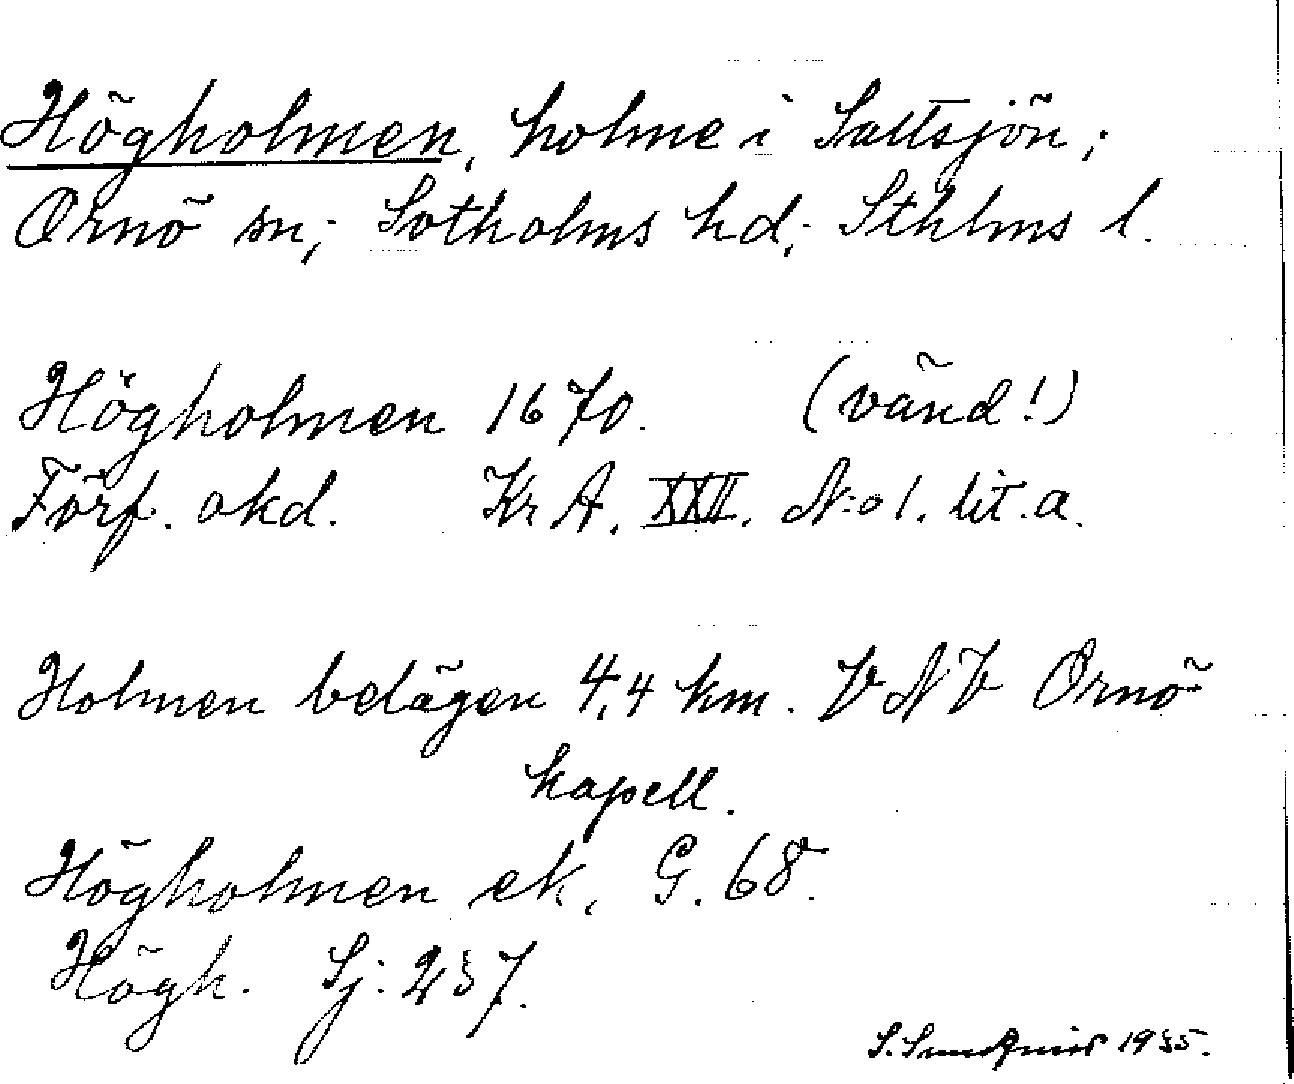 Högholmen, holme i Saltsjön;
Ornö sn; Sotholms hd; Sthlms l.
Högholmen 1670. (vänd!)
Förf. okd. Kr A. XXII. N:o 1. lit. a.
Holmen belägen 4,4 km. V N V Ornö
kapell.
Högholmen ek. G. 68.
Högh. Sj: 237.
S. 1935.